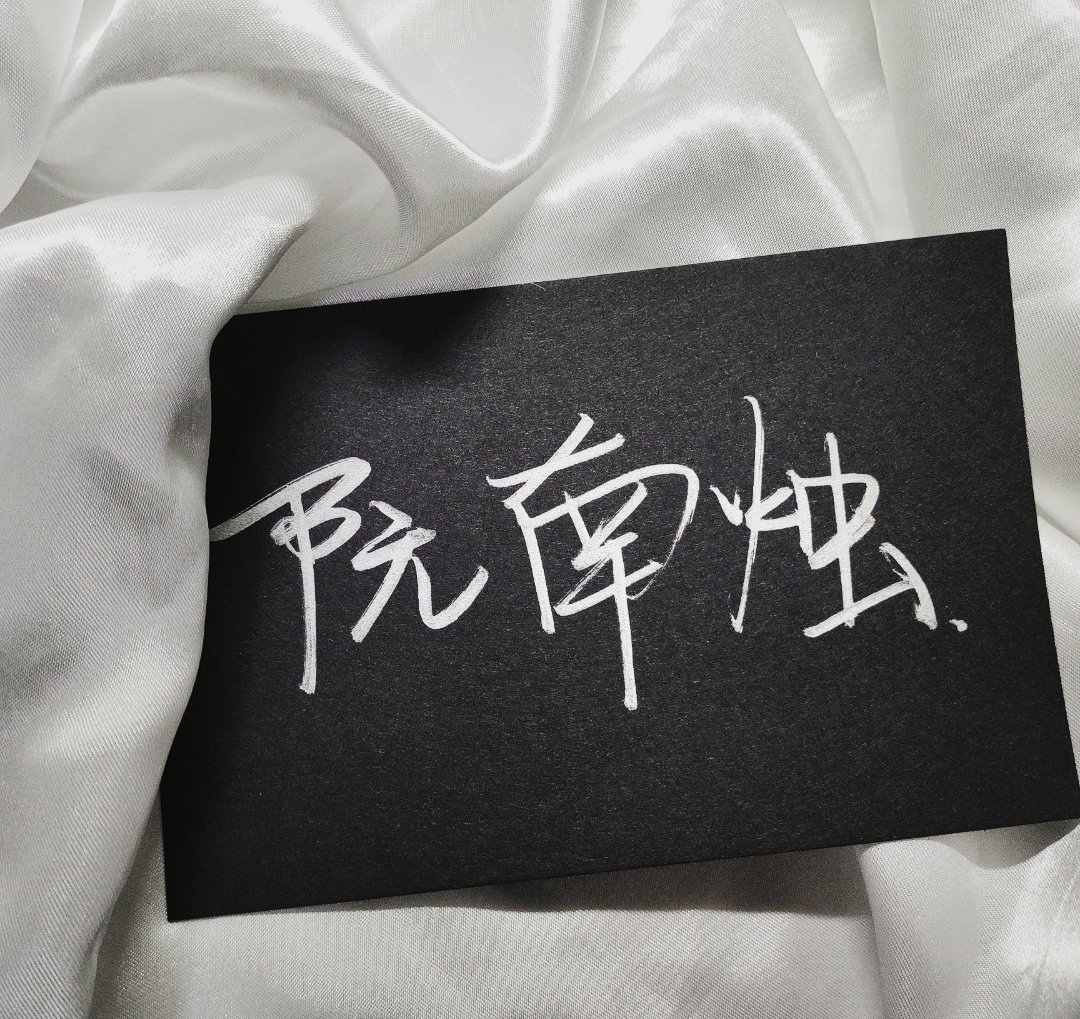 阮南烛.